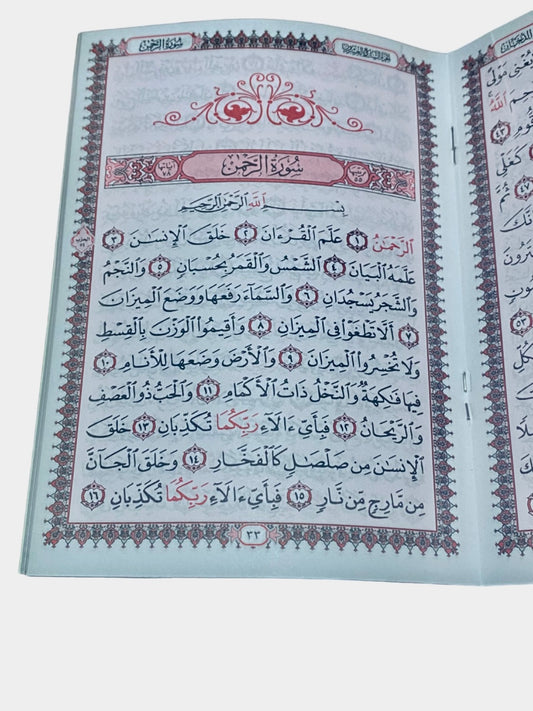 سُورَةُ الرَّحْمَٰن
سُورَةُ الرَّحْمَٰن
بِسْمِ اللَّهِ الرَّحْمَٰنِ الرَّحِيمِ
الرَّحْمَٰنُ ١ عَلَّمَ الْقُرْءَانَ ٢ خَلَقَ الْإِنسَٰنَ ٣
عَلَّمَهُ الْبَيَانَ ٤ الشَّمْسُ وَالْقَمَرُ بِحُسْبَانٍ ٥ وَالنَّجْمُ
وَالشَّجَرُ يَسْجُدَانِ ٦ وَالسَّمَآءَ رَفَعَهَا وَوَضَعَ الْمِيزَانَ
٧ أَلَّا تَطْغَوْا فِي الْمِيزَانِ ٨ وَأَقِيمُوا الْوَزْنَ بِالْقِسْطِ
وَلَا تُخْسِرُوا الْمِيزَانَ ٩ وَالْأَرْضَ وَضَعَهَا لِلْأَنَامِ ١٠
فِيهَا فَٰكِهَةٌ وَالنَّخْلُ ذَاتُ الْأَكْمَامِ ١١ وَالْحَبُّ ذُو الْعَصْفِ
وَالرَّيْحَانُ ١٢ فَبِأَيِّ ءَالَآءِ رَبِّكُمَا تُكَذِّبَانِ ١٣ خَلَقَ
الْإِنسَٰنَ مِن صَلْصَٰلٍ كَالْفَخَّارِ ١٤ وَخَلَقَ الْجَآنَّ
مِن مَّارِجٍ مِّن نَّارٍ ١٥ فَبِأَيِّ ءَالَآءِ رَبِّكُمَا تُكَذِّبَانِ ١٦
٣٣